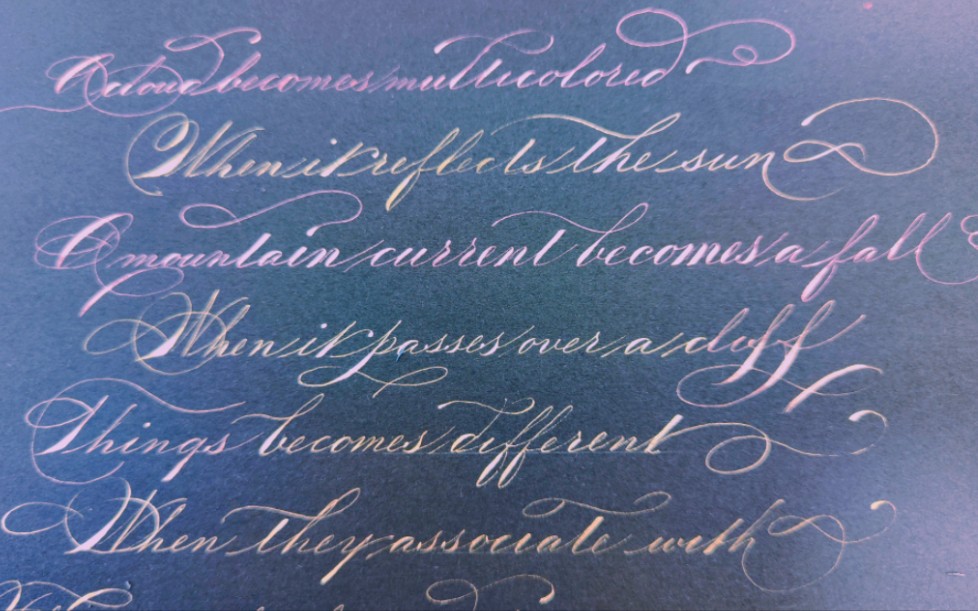 A cloud becomes multicolored
When it reflects the sun
A mountain current becomes a fall
When it passes over a cliff
Things becomes different
When they associate with